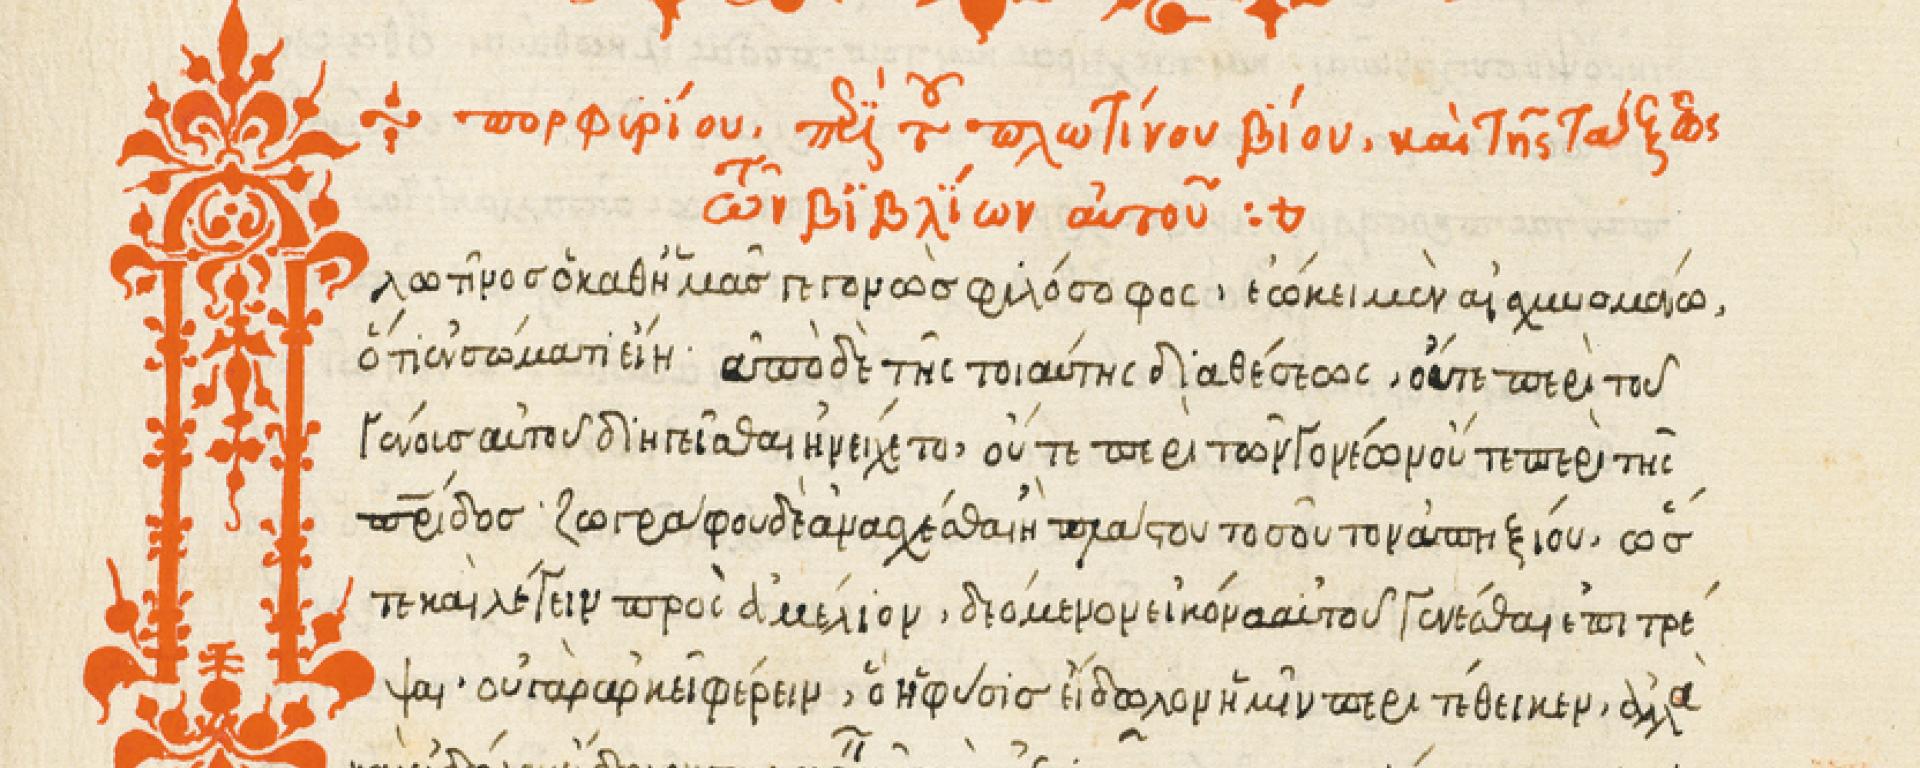 πορφιρίου, περὶ τοῦ πλωτίνου βίου, καὶ τῆς τάξεως
τῶν βϊβλΐων αὐτοῦ :+
λωτῖνος ὁ καθ' ἡμᾶς γεγονὼς φιλόσοφος, ἐῴκει μὲν αἰσχυνομένω,
ὅτι ἐν σώματι εἴη· ἀπὸ δὲ τῆς τοιαύτης διαθέσεως, οὔτε περὶ τοῦ
γένους αὐτοῦ διηγεῖσθαι ἠνείχετο, οὔτε περὶ τῶν γονέων οὔτε περὶ τῆς
πατρίδος· ζωγράφου δὲ ἀνασχέσθαι ἢ πλάστου τοσοῦτον ἀπηξίου, ὥς
τε καὶ λέγειν πρὸς ἀμέλιον, δεόμενον εἰκόνα αὐτοῦ γενέσθαι ἐπιτρέ
ψαι· οὐ γὰρ ἀρκεῖ φέρειν, ὃ ἡ φύσις εἴδωλον ἡμῖν περιτέθεικεν, ἀλλὰ